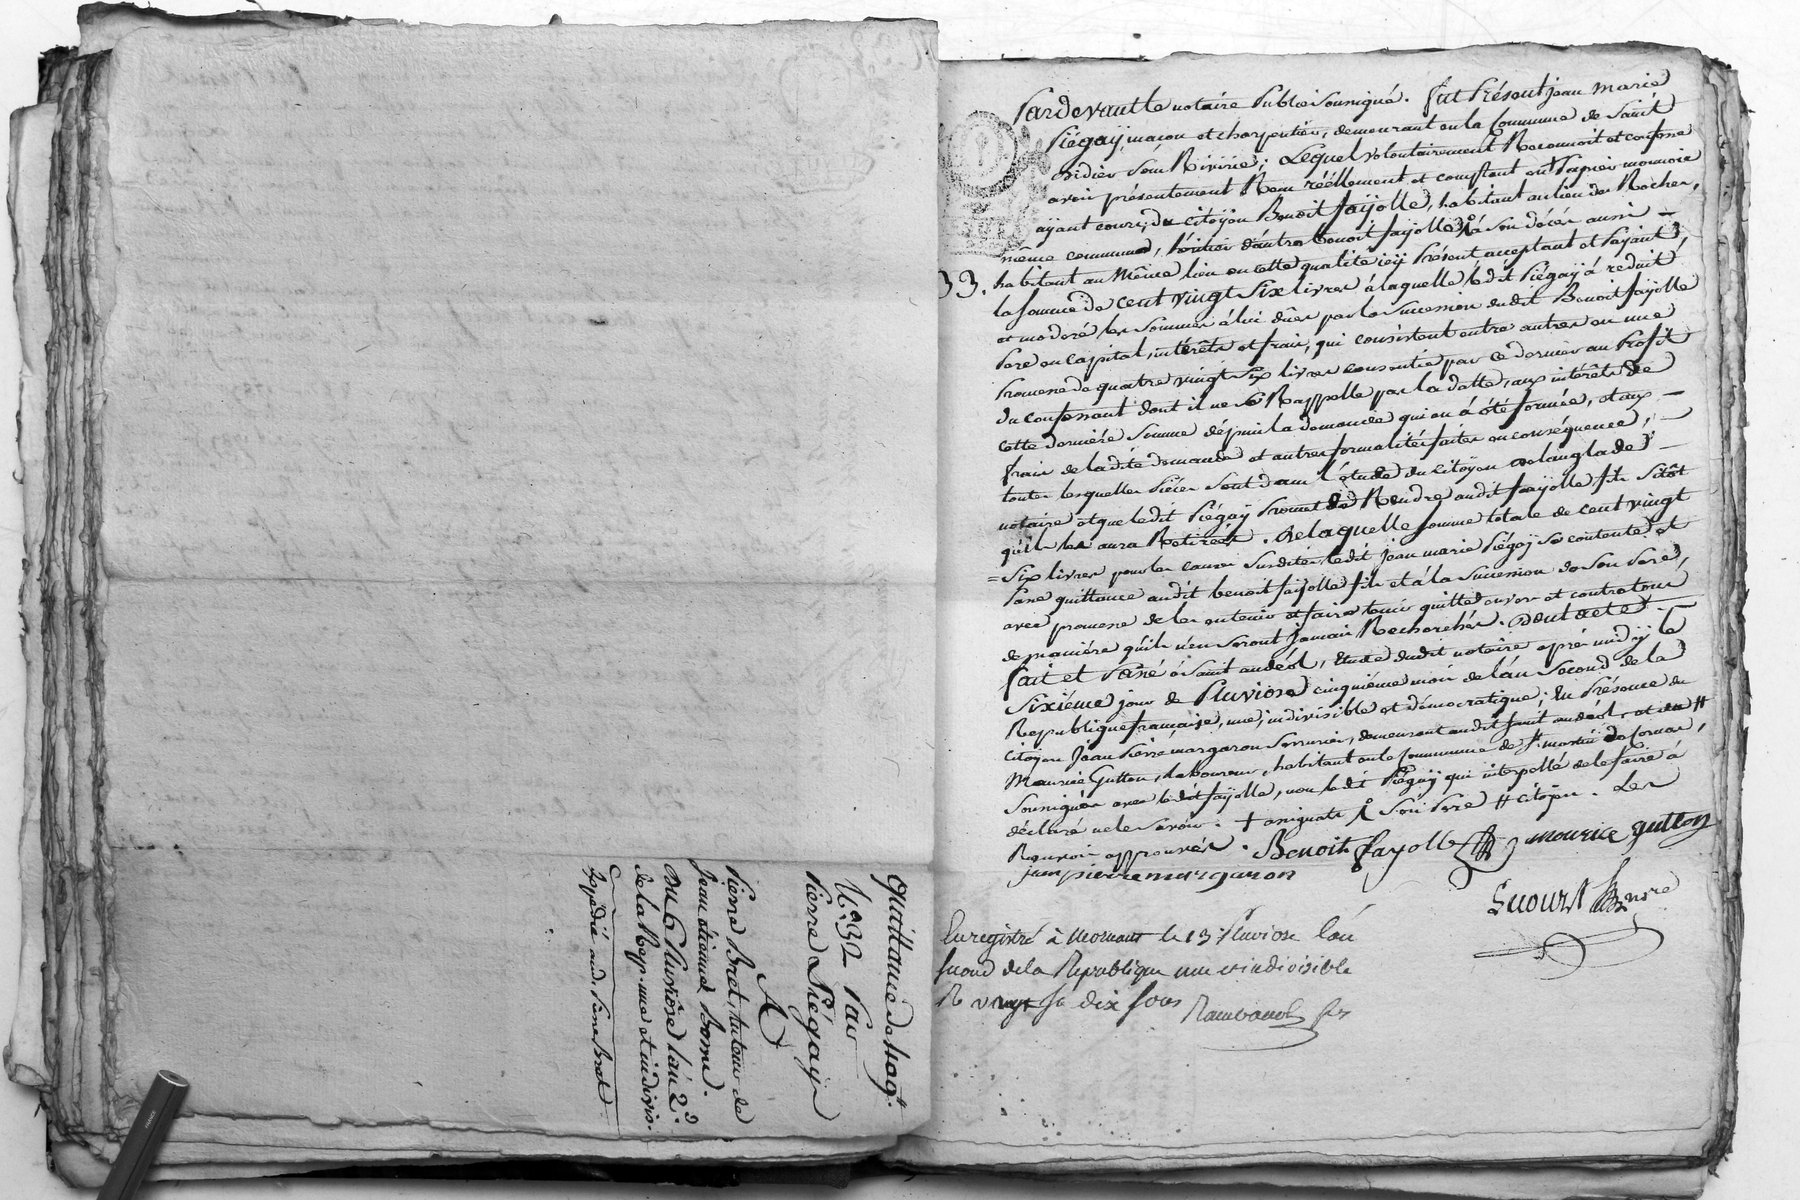 Quittance de 40g.tt
N.° 32 Par
Pierre Piégaÿ
A
Pierre Bret, tuteur de
Jean étienne Born.
Du 6 Pluviôse l'an 2.d
de la Rep. une et indivis.
Expedié aud. Pierre Bret
Pardevant le notaire Public soussigné. fut Présent jean marie
Piégaÿ maçon et charpentier, demeurant en la Commune de Saint
didier sous Rivirie; Lequel volontairement Reconnoit et confesse
avoir présentement Reçu réellement et comptant en + Papier monnoie
ayant cours, du citoÿen Benoit fayolle, habitant au lieu du Rocher,
même commune, héritier d'autre Benoit fayolle à son décès aussi
33. habitant au Même lieu en cette qualité icÿ Présent acceptant et Payant
la somme de cent vingt Six livres à laquelle ledit Piégaÿ à réduit
et modéré les sommes à lui dües par la Succession dudit Benoit fayolle
Pere en capital, intérêts et frais, qui consistent entre autres en une
Promesse de quatre vingt Six livres consentie par ce dernier au Profit
du confessant dont il ne se Rappelle pas la datte, aux intérêts de
cette dernière Somme dépuis la demande qui en à été formée, et aux
frais de la dite demande et autres formalités faites en conséquence,
toutes lesquelles Pièces sont dans l'étude du citoÿen Delanglade
notaire et que ledit Piégaÿ Promet de Rendre audit fayolle fils sitôt
qu'il les aura Retirées. De laquelle somme totale de cent vingt
= Six livres pour les causes Susdites ledit jean marie Piégaÿ se contente et
Passe quittance audit benoit fayolle fils et à la Succession de son Pere,
avec promesse de les en tenir et faire tenir quittes envers et contre tous
de manière qu'ils n'en seront jamais Recherchés. Dont acte
fait et Passé à Saint andéol, Etude dudit notaire après midÿ le
Sixième jour de Pluviose cinquième mois de l'an Second de la
Republique française, une, indivisible et démocratique; En Présence du
citoyen Jean Pierre margaron Serrurier, demeurant audit saint andéol, et du #
Maurice Gutton, laboureur, habitant en la Commune de St. martin de Cornas,
Soussignés avec ledit fayolle, non ledit Piégaÿ qui interpellé de le faire à
déclaré ne le savoir. + assignats son Pere # citoÿen. Les
Renvois approuvés. Benoit fayolle maurice gutton
jean pierre margaron
Enregistré à Mornant le 13 Pluviose l'an
second de la Republique une et indivisible
R vingt s. dix sous